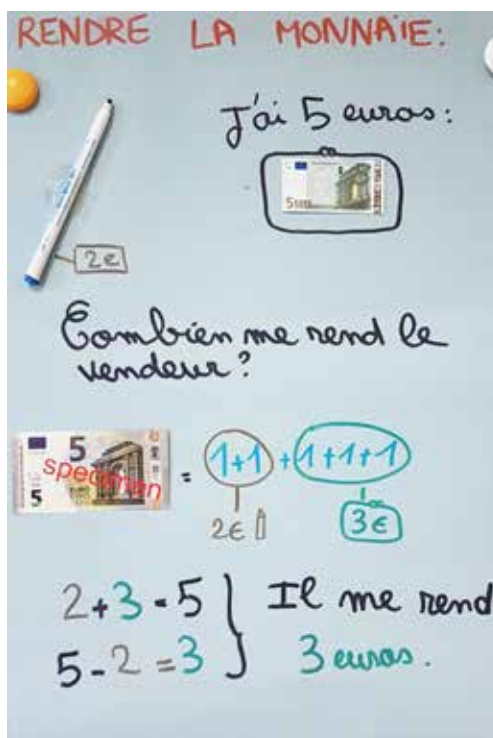 RENDRE LA MONNAIE:
J'ai 5 euros:
2€
Combien me rend le
vendeur?
5
specimen
5
= 1+1 + 1+1+1
2€ 3€
2+3=5 } Il me rend
5-2=3 3 euros.